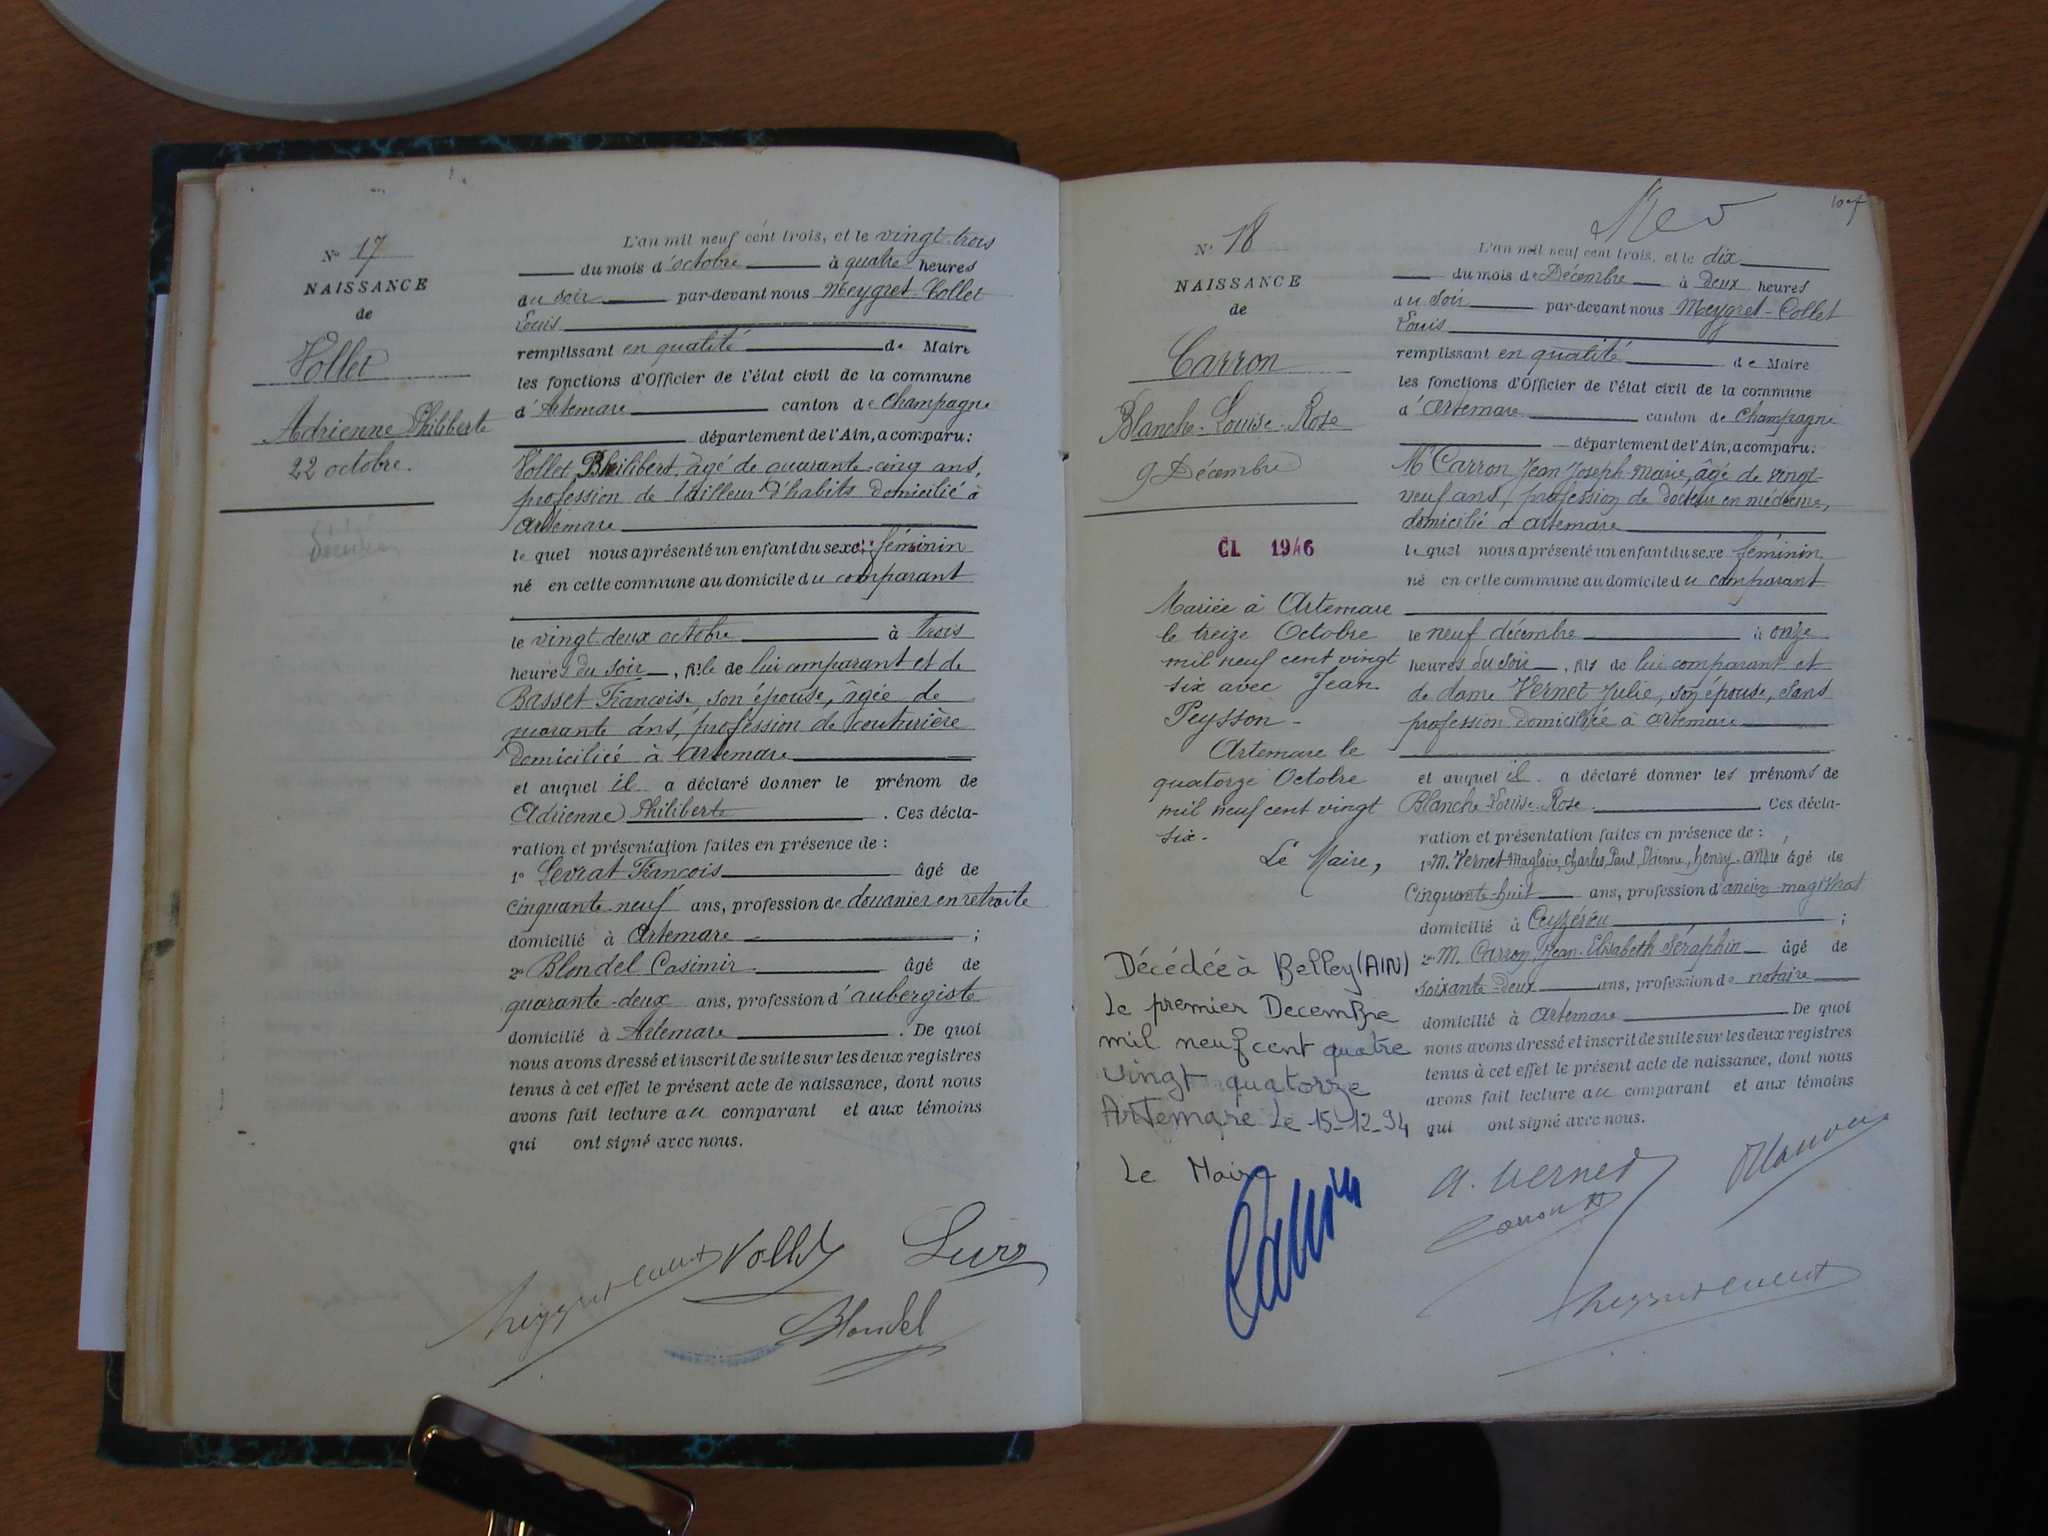 N° 17
NAISSANCE
de
Vollet
Adrienne Philiberte
22 octobre.
décédée
L'an mil neuf cent trois, et le vingt-trois
du mois d'octobre à quatre heures
du soir par-devant nous Meygret-Collet
Louis
remplissant en qualité de Maire
les fonctions d'Officier de l'état civil de la commune
d'Artemare canton de Champagne
département de l'Ain, a comparu:
Vollet Philibert, âgé de quarante-cinq ans,
profession de tailleur d'habits domicilié à
Artemare
le quel nous a présenté un enfant du sexe féminin
né en cette commune au domicile du comparant
le vingt deux octobre à trois
heures du soir, fille de lui comparant et de
Basset Françoise, son épouse, âgée de
quarante ans, profession de couturière
domiciliée à Artemare
et auquel il a déclaré donner le prénom de
Adrienne Philiberte. Ces décla-
ration et présentation faites en présence de :
1° Levrat François âgé de
cinquante-neuf ans, profession de douanier en retraite
domicilié à Artemare ;
2° Blondel Casimir âgé de
quarante-deux ans, profession d'aubergiste
domicilié à Artemare. De quoi
nous avons dressé et inscrit de suite sur les deux registres
tenus à cet effet le présent acte de naissance, dont nous
avons fait lecture au comparant et aux témoins
qui ont signé avec nous.
Meygret-Collet Vollet
Blondel
N° 18
NAISSANCE
de
Carron
Blanche-Louise-Rose
9 Décembre
CL 1946
Mariée à Artemare
le treize Octobre
mil neuf cent vingt
six avec Jean
Peysson -
Artemare le
quatorze Octobre
mil neuf cent vingt
six.
Le Maire,
Décédée à Belley (AIN)
le premier Decembre
mil neuf cent quatre
vingt quatorze
Artemare le 15-12-94
Le Maire
L'an mil neuf cent trois, et le dix
du mois de Décembre à deux heures
du soir par-devant nous Meygret-Collet
Louis
remplissant en qualité de Maire
les fonctions d'Officier de l'état civil de la commune
d'Artemare canton de Champagne
département de l'Ain, a comparu:
Mr Carron Jean Joseph-Marie, âgé de vingt-
neuf ans, profession de Docteur en médecine,
domicilié à Artemare
le quel nous a présenté un enfant du sexe féminin
né en cette commune au domicile du comparant
le neuf décembre à onze
heures du soir, fils de lui comparant et
de dame Vernet Julie, son épouse, sans
profession domiciliée à Artemare
et auquel il a déclaré donner les prénoms de
Blanche-Louise-Rose. Ces décla-
ration et présentation faites en présence de :
1° M. Vernet Magloire, Charles, Paul, Etienne, henry, andré âgé de
Cinquante-huit ans, profession d'ancien magistrat
domicilié à Ceyzérieu ;
2° M. Carron, Jean-Elisabeth Séraphin âgé de
soixante-deux ans, profession de notaire
domicilié à Artemare De quoi
nous avons dressé et inscrit de suite sur les deux registres
tenus à cet effet le présent acte de naissance, dont nous
avons fait lecture au comparant et aux témoins
qui ont signé avec nous.
A. Vernet
Carron
Meygret-Collet